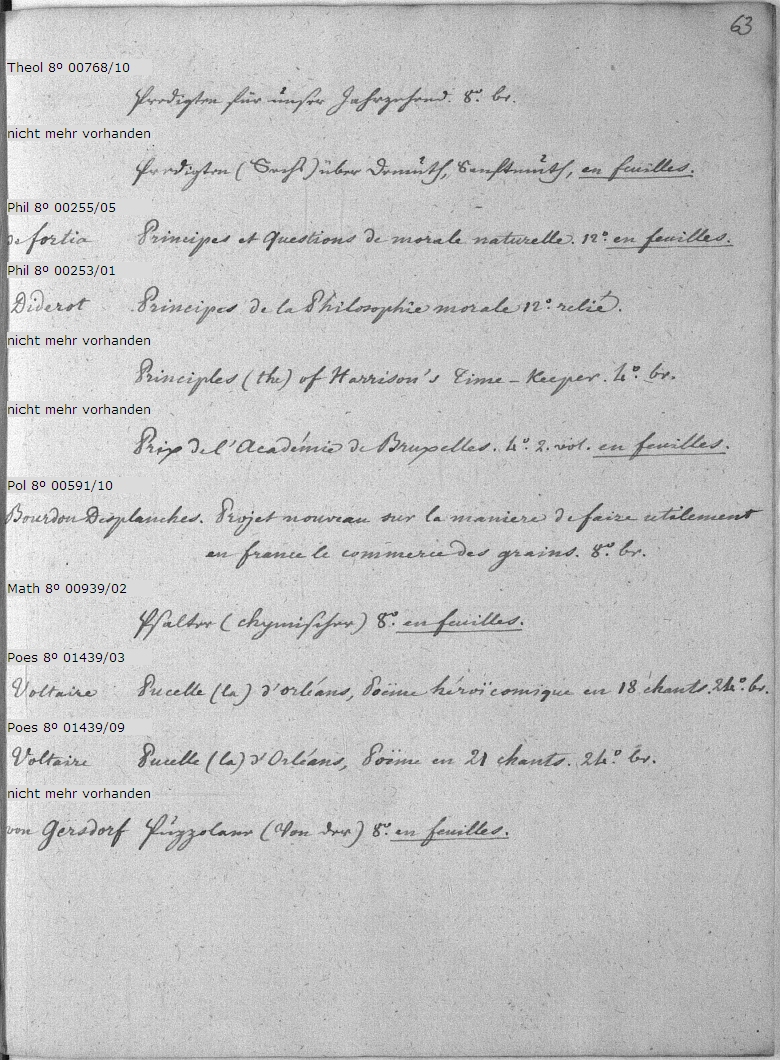 63
Theol 8º 00768/10
Predigten für unser Jahrzehend. 8º. br.
nicht mehr vorhanden
Predigten (Sechs) über Demuth, Sanftmuth, en feuilles.
Phil 8º 00255/05
de fortia Principes et Questions de morale naturelle. 12º en feuilles.
Phil 8º 00253/01
Diderot Principes de la Philosophie morale 12º relié.
nicht mehr vorhanden
Principles (the) of Harrison's Time-Keeper. 4º. br.
nicht mehr vorhanden
Prix de l'Académie de Bruxelles. 4º. 2. vol. en feuilles.
Pol 8º 00591/10
Bourdon Desplanches. Projet nouveau sur la maniere de faire utilement
en france le commerce des grains. 8º. br.
Math 8º 00939/02
Psalter (chymischer) 8º. en feuilles.
Poes 8º 01439/03
Voltaire Pucelle (la) d'orléans, Poëme héroïcomique en 18 chants. 24º. br.
Poes 8º 01439/09
Voltaire Pucelle (la) d'Orléans, Poëme en 21 chants. 24º. br.
nicht mehr vorhanden
von Gersdorf Puzzolane (Von der) 8º. en feuilles.